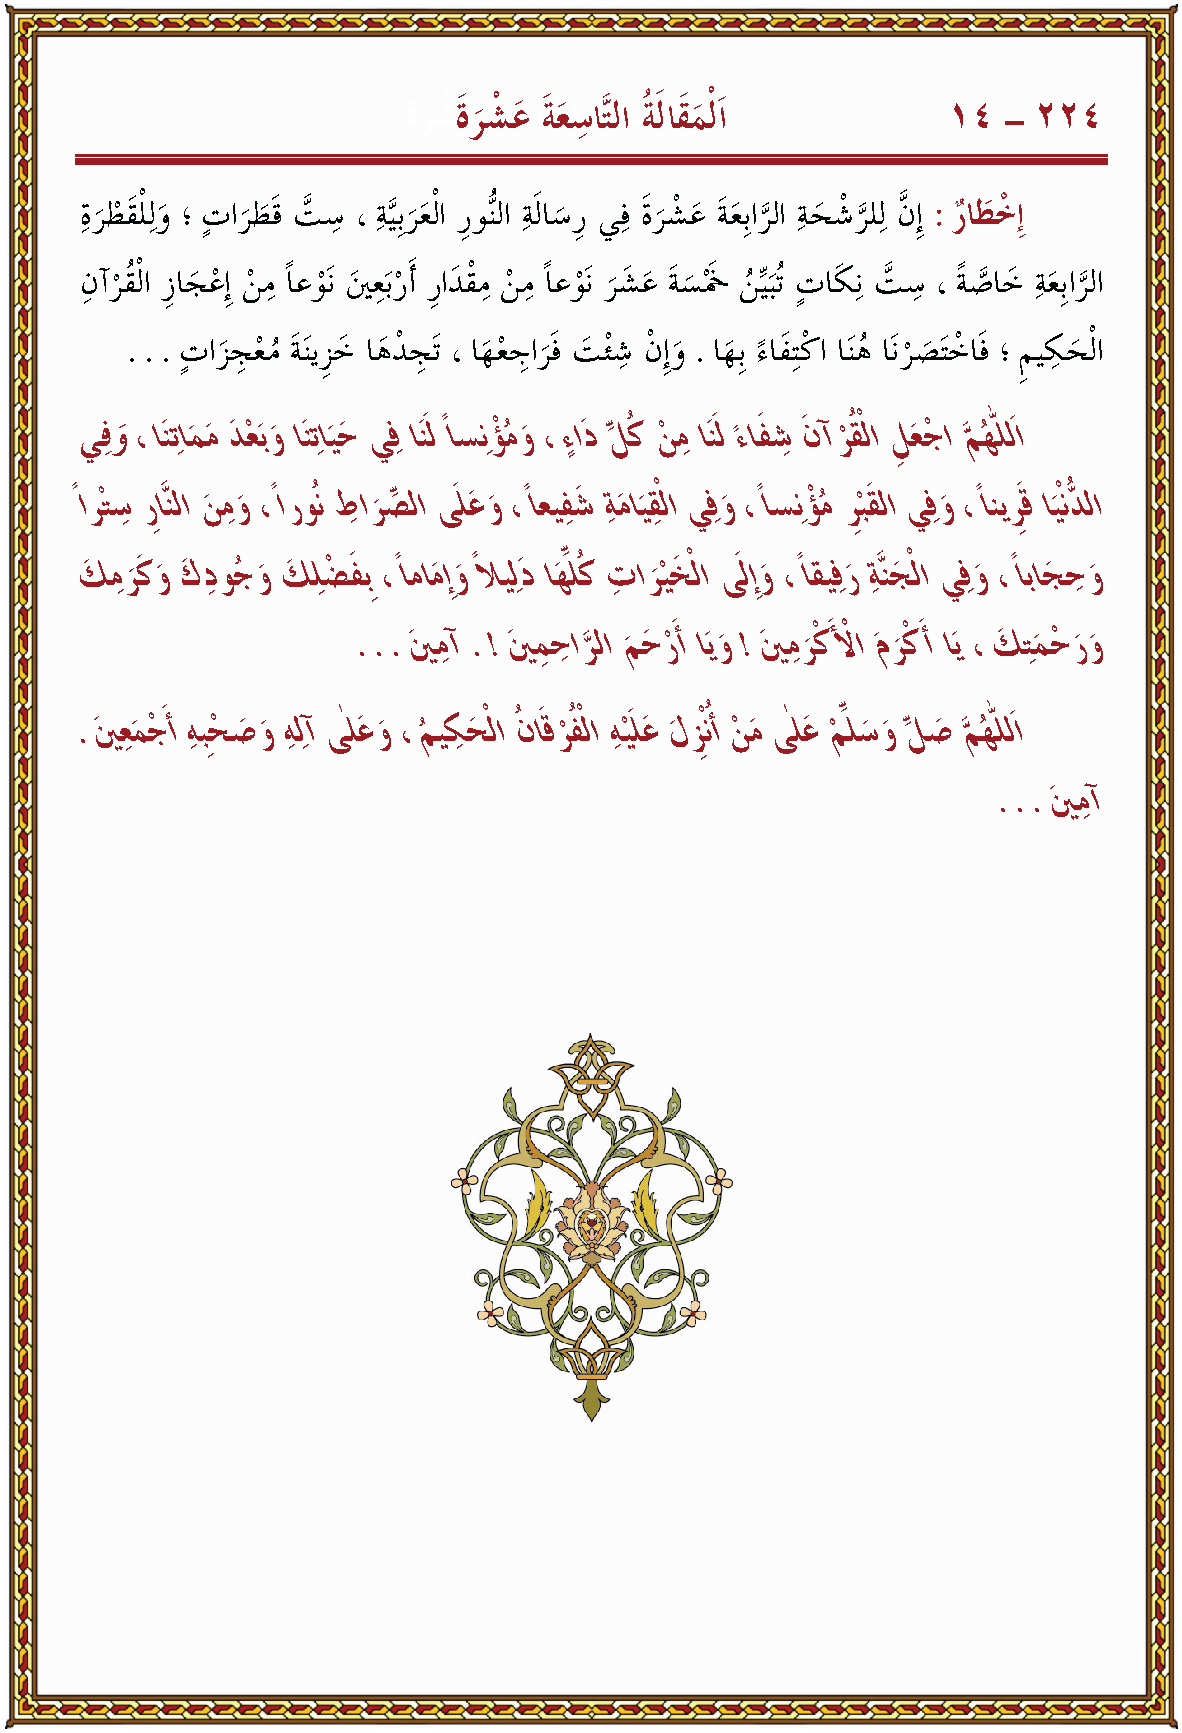 ٢٢٤ – ١٤ اَلْمَقَالَةُ التَّاسِعَةَ عَشْرَةَ
إِخْطَارٌ : إِنَّ لِلرَّشْحَةِ الرَّابِعَةَ عَشْرَةَ فِي رِسَالَةِ النُّورِ الْعَرَبِيَّةِ ، سِتَّ قَطَرَاتٍ ؛ وَلِلْقَطْرَةِ
الرَّابِعَةِ خَاصَّةً ، سِتَّ نِكَاتٍ تُبَيِّنُ خَمْسَةَ عَشَرَ نَوْعاً مِنْ مِقْدَارِ أَرْبَعِينَ نَوْعاً مِنْ إِعْجَازِ الْقُرْآنِ
الْحَكِيمِ ؛ فَاخْتَصَرْنَا هُنَا اكْتِفَاءً بِهَا . وَإِنْ شِئْتَ فَرَاجِعْهَا ، تَجِدْهَا خَزِينَةَ مُعْجِزَاتٍ . . .
اَللّٰهُمَّ اجْعَلِ الْقُرْآنَ شِفَاءً لَنَا مِنْ كُلِّ دَاءٍ ، وَمُؤْنِساً لَنَا فِي حَيَاتِنَا وَبَعْدَ مَمَاتِنَا ، وَفِي
الدُّنْيَا قَرِيناً ، وَفِي الْقَبْرِ مُؤْنِساً ، وَفِي الْقِيَامَةِ شَفِيعاً ، وَعَلَى الصِّرَاطِ نُوراً ، وَمِنَ النَّارِ سِتْراً
وَحِجَاباً ، وَفِي الْجَنَّةِ رَفِيقاً ، وَإِلَى الْخَيْرَاتِ كُلِّهَا دَلِيلاً وَإِمَاماً ، بِفَضْلِكَ وَجُودِكَ وَكَرَمِكَ
وَرَحْمَتِكَ ، يَا أَكْرَمَ الْأَكْرَمِينَ ! وَيَا أَرْحَمَ الرَّاحِمِينَ ! . آمِينَ . . .
اَللّٰهُمَّ صَلِّ وَسَلِّمْ عَلٰى مَنْ أُنْزِلَ عَلَيْهِ الْفُرْقَانُ الْحَكِيمُ ، وَعَلٰى آلِهِ وَصَحْبِهِ أَجْمَعِينَ .
آمِينَ . . .